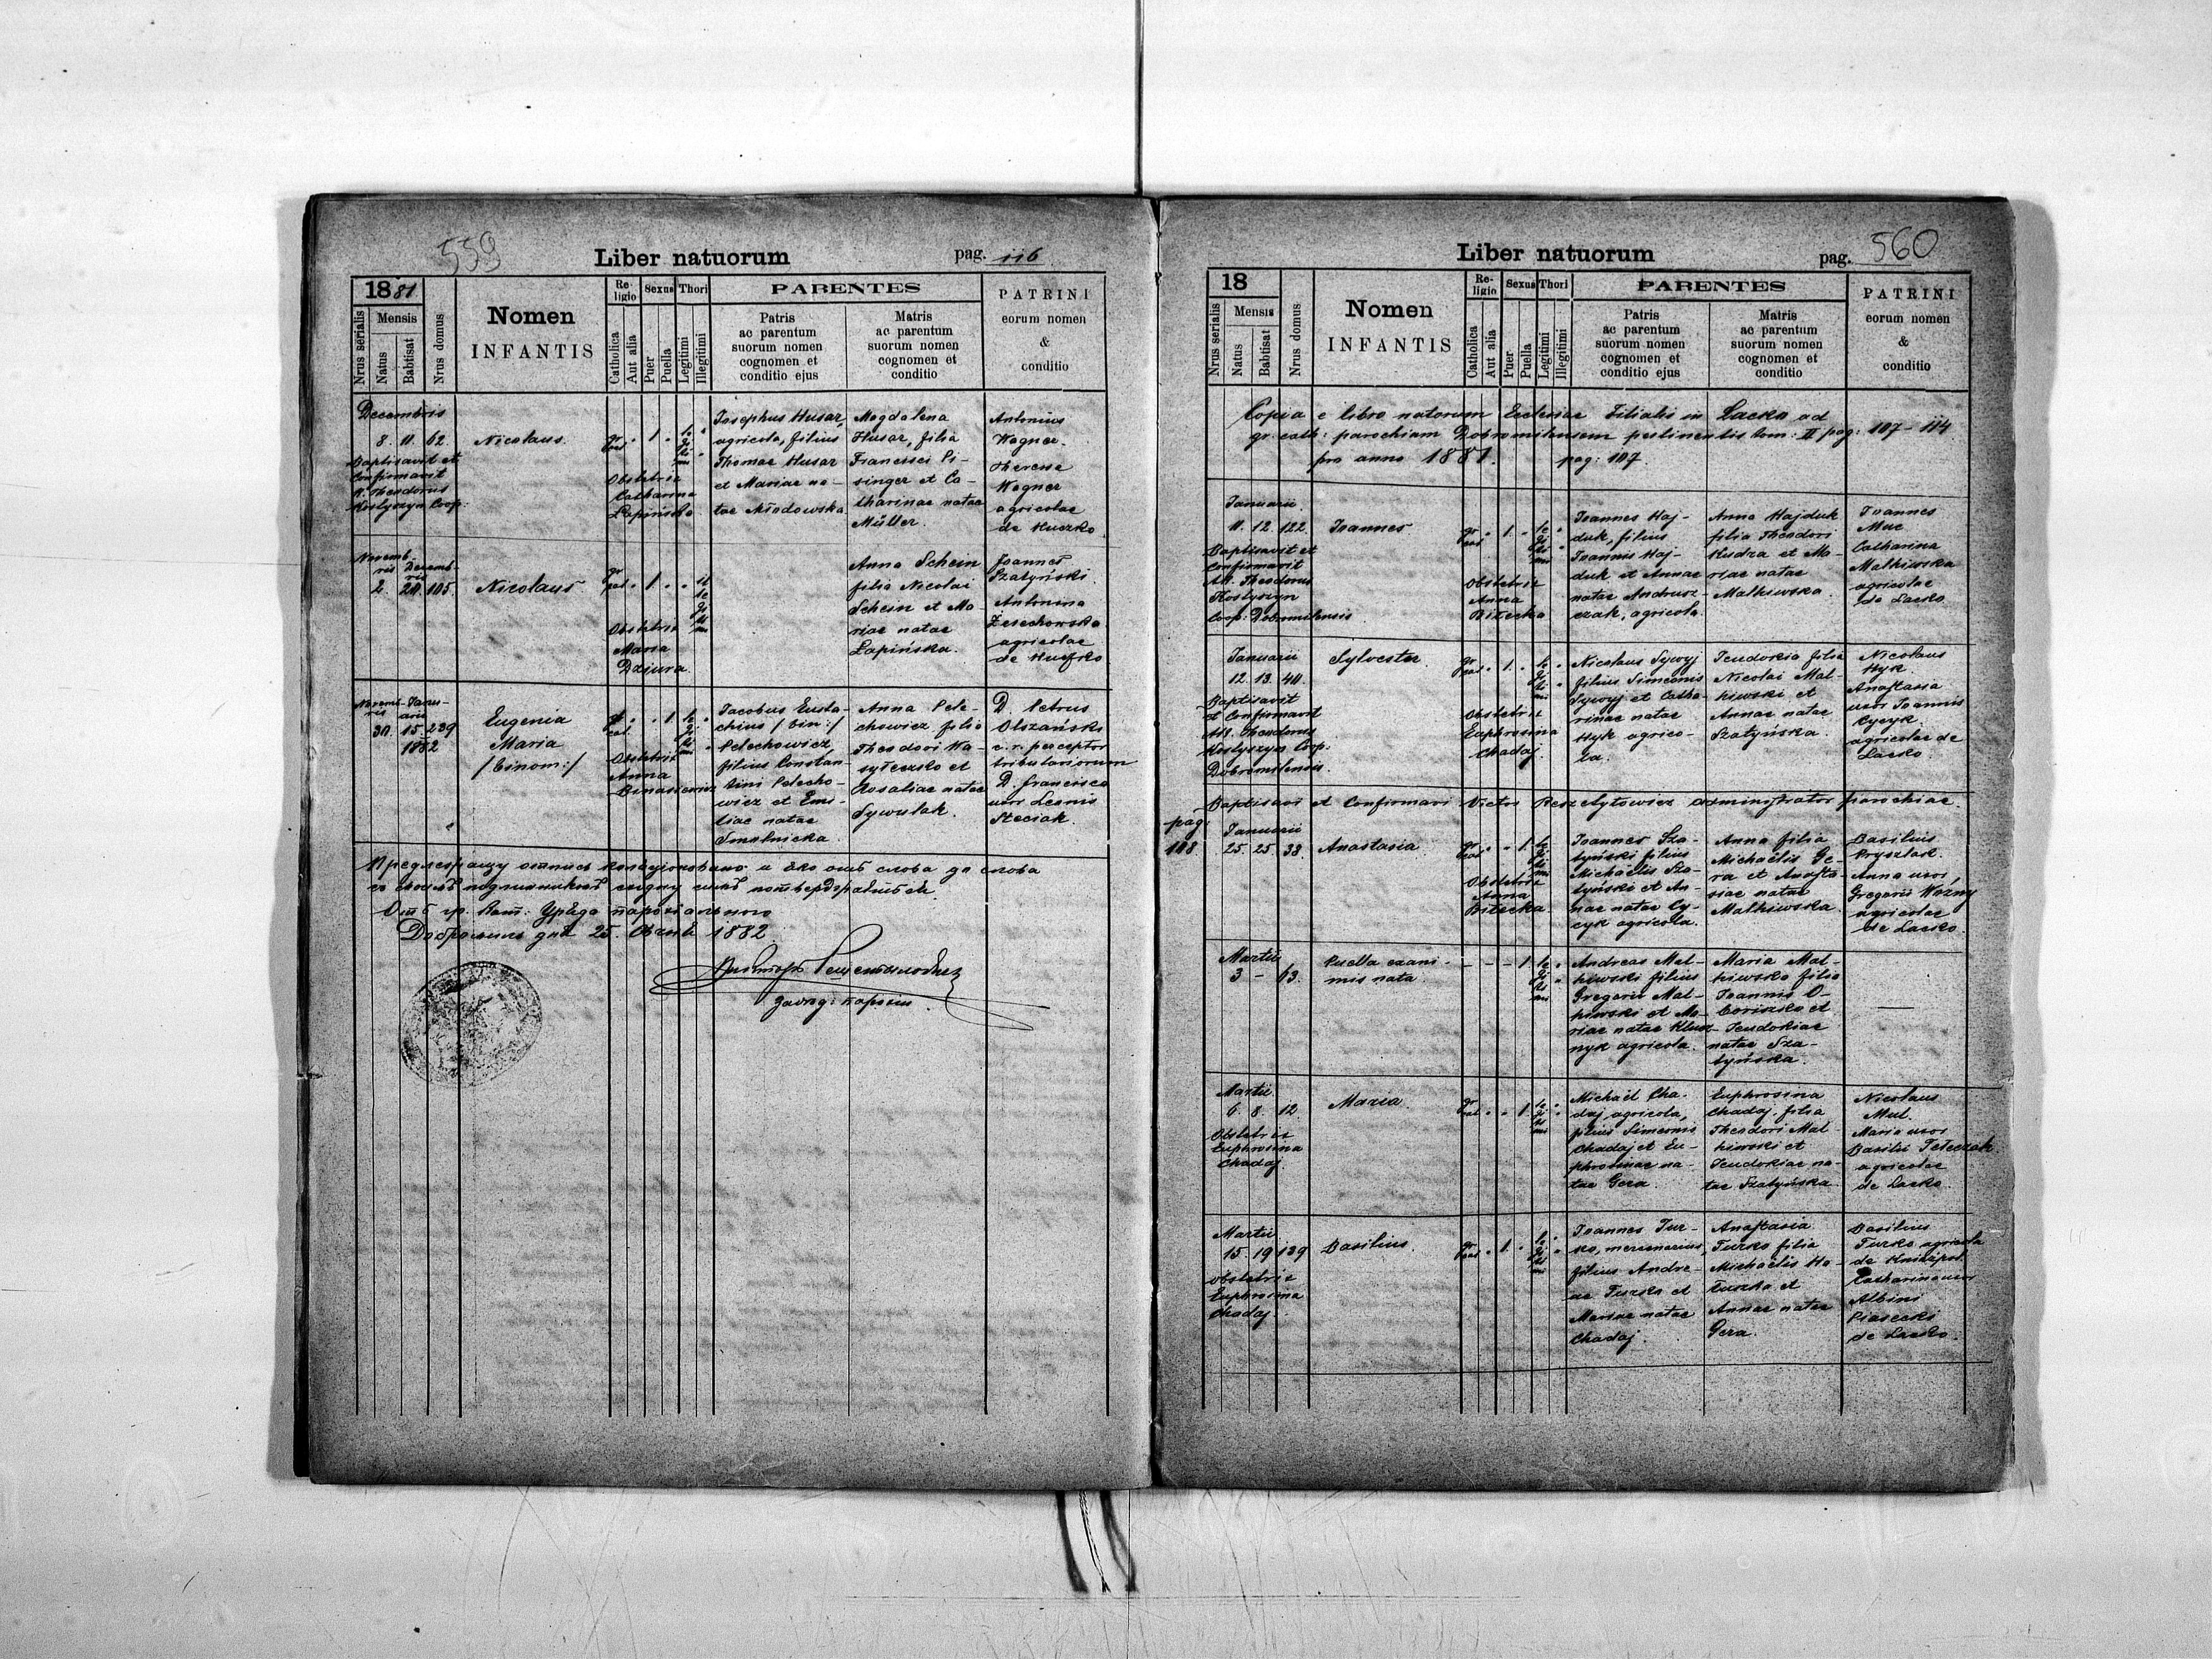 559
Liber natuorum
pag. 116
1881
Nrus serialis
Mensis
Natus
Babtisat
Nrus domus
Nomen
INFANTIS
Religio
Catholica
Aut alia
Sexus
Puer
Puella
Thori
Legitimi
Illegitimi
PARENTES
Patris
ac parentum
suorum nomen
cognomen et
conditio ejus
Matris
ac parentum
suorum nomen
cognomen et
conditio
PATRINI
eorum nomen
&
conditio
Decembris
8. 11. 62.
Baptisavit et
Confirmavit
Theodorus
Kostyszyn Coop.
Nicolaus.
gr cat
1
legitimi
Obstetrix
Catharina
Łapińska.
Josephus Husar,
agricola, filius
Thomae Husar
et Mariae na-
tae Młodowska
Magdalena
Husar, filia
Francisci Pi-
singer et Ca-
tharinae natae
Müller.
Antonius
Wagner.
Theresa
Wagner
agricolae
de Huczko
Novemb-
ris Decemb-
ris
2 20. 105.
Nicolaus
gr cat
1
illegitimi
Obstetrix
Maria
Dziura.
Anna Schein
filia Nicolai
Schein et Ma-
riae natae
Łapińska.
Joannes
Szatyński.
Antonina
agricolae
de Huczko
Novemb-
ris Janu-
arii
30. 15. 239
1882
Eugenia
Maria
/binom:/
cat
1
legitimi
Obstetrix
Anna
Jacobus Eusta-
chius /bin:/
Pelechowicz,
filius Constan-
tini Pelecho-
wicz et Emi-
liae natae
Smolnicka.
Anna Pele-
chowicz filia
Theodori Wa-
sylczko et
Rosaliae natae
Sywulak.
D. Petrus
Olszański
c. r. perceptor
tributariorum
D. Francisca
uxor Leonis
Steciak.
слова до слова
Отъ гр. кат. Уряда парохіяльного
Добромиль дня 25. 1882
завѣд: парохіи
Liber natuorum
pag. 560
18
Nrus serialis
Mensis
Natus
Babtisat
Nrus domus
Nomen
INFANTIS
Religio
Catholica
Aut alia
Sexus
Puer
Puella
Thori
Legitimi
Illegitimi
PARENTES
Patris
ac parentum
suorum nomen
cognomen et
conditio ejus
Matris
ac parentum
suorum nomen
cognomen et
conditio
PATRINI
eorum nomen
&
conditio
Copia e libro natorum Ecclesiae Filialis in Lacko ad
gr: cath: parochiam Dobromilensem pertinentis tom: II pag: 107-114
pro anno 1881. pag: 107.
Januarii
11. 12. 122.
Baptisavit et
Confirmavit
Theodorus
Kostyszyn
Coop: Dobromilensis
Joannes
gr cat
1
legitimi
Obstetrix
Anna
Bilecka
Joannes Haj-
duk, filius
Joannis Haj-
duk et Annae
natae Andrusz-
czak, agricola.
Anna Hajduk
filia Theodori
Kudza et Ma-
riae natae
Malhiwska.
Joannes
Catharina
Malhiwska
agricolae
de Lacko
Januarii
12. 13. 40.
Baptisavit
et Confirmavit
Theodorus
Kostyszyn Coop:
Dobromilensis.
Sylvester.
gr cat
1
legitimi
Obstetrix
Euphrosina
Chadaj.
Nicolaus Sywyj
filius Simeonis
Sywyj et Catha-
rinae natae
Hyk agrico-
la.
Teudokia filia
Nicolai Mal-
hiwski et
Annae natae
Szatyńska.
Nicolaus
Hyk.
Anastasia
uxor Joannis
Cycyk.
agricolae de
Lacko.
Baptisavi et Confirmavi Victor Reszetyłowicz administrator parochiae.
pag:
108
Januarii
25. 25. 38.
Anastasia.
gr cat
1
legitimi
Obstetrix
Anna
Bilecka
Joannes Sza-
tyński filius
Michaelis Sza-
tyński et An-
nae natae Cy-
cyk agricola.
Anna filia
Michaelis Ge-
ra et Anasta-
siae natae
Malhiwska.
Basilius
Prysztak.
Anna uxor
Gregorii Wozny
agricolae
de Lacko.
Martii
3 - 63.
Puella exani-
mis nata.
1
legitimi
Andreas Mal-
hiwski filius
Gregorii Mal-
hiwski et Ma-
riae natae Klusz-
nyk agricola.
Maria Mal-
hiwska filia
Joannis O-
boriszko et
Teudokiae
natae Sza-
tyńska.
Martii
6. 8. 12
Obstetrix
Euphrosina
Chadaj
Maria.
gr cat
1
legitimi
Michaël Cha-
daj agricola,
filius Simeonis
Chadaj et Eu-
phrosinae na-
tae Gera.
Euphrosina
Chadaj filia
Theodori Mal-
hiwski et
Teudokiae na-
tae Szatyńska.
Nicolaus
Mul.
Maria uxor
Basilii
agricolae
de Lacko.
Martii
15. 19. 139
Obstetrix
Euphrosina
Chadaj.
Basilius.
gr cat
1
legitimi
Joannes Tur-
ko, mercenarius,
filius Andre-
ae Turko et
Mariae natae
Chadaj.
Anastasia
Turko filia
Michaelis Ho-
łuszko et
Annae natae
Gera.
Basilius
Turko agricola
de
Catharina uxor
Albini
Piasecki
de Lacko.